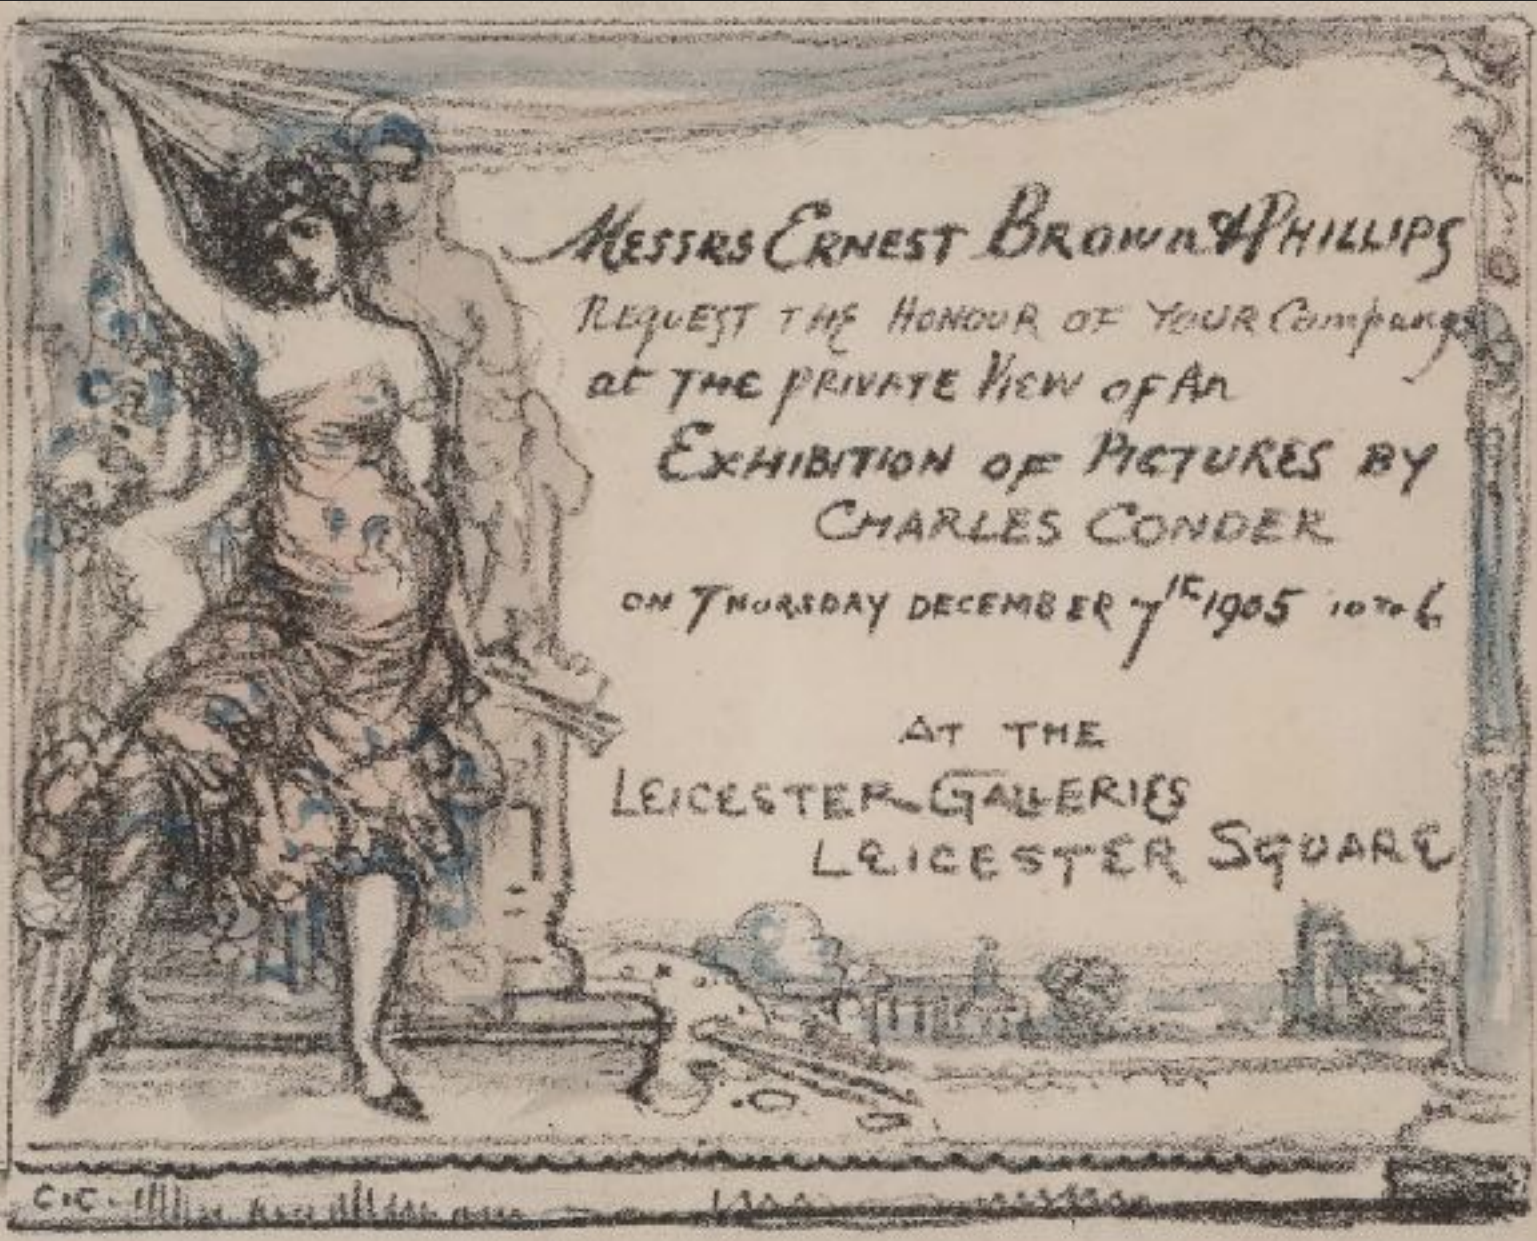 MESSRS ERNEST BROWN & PHILLIPS
REQUEST THE HONOUR OF YOUR Company
at THE PRIVATE VIEW OF An
EXHIBITION OF PICTURES BY
CHARLES CONDER
ON THURSDAY DECEMBER 7th 1905 10 TO 6
AT THE
LEICESTER GALLERIES
LEICESTER SQUARE
C.C.